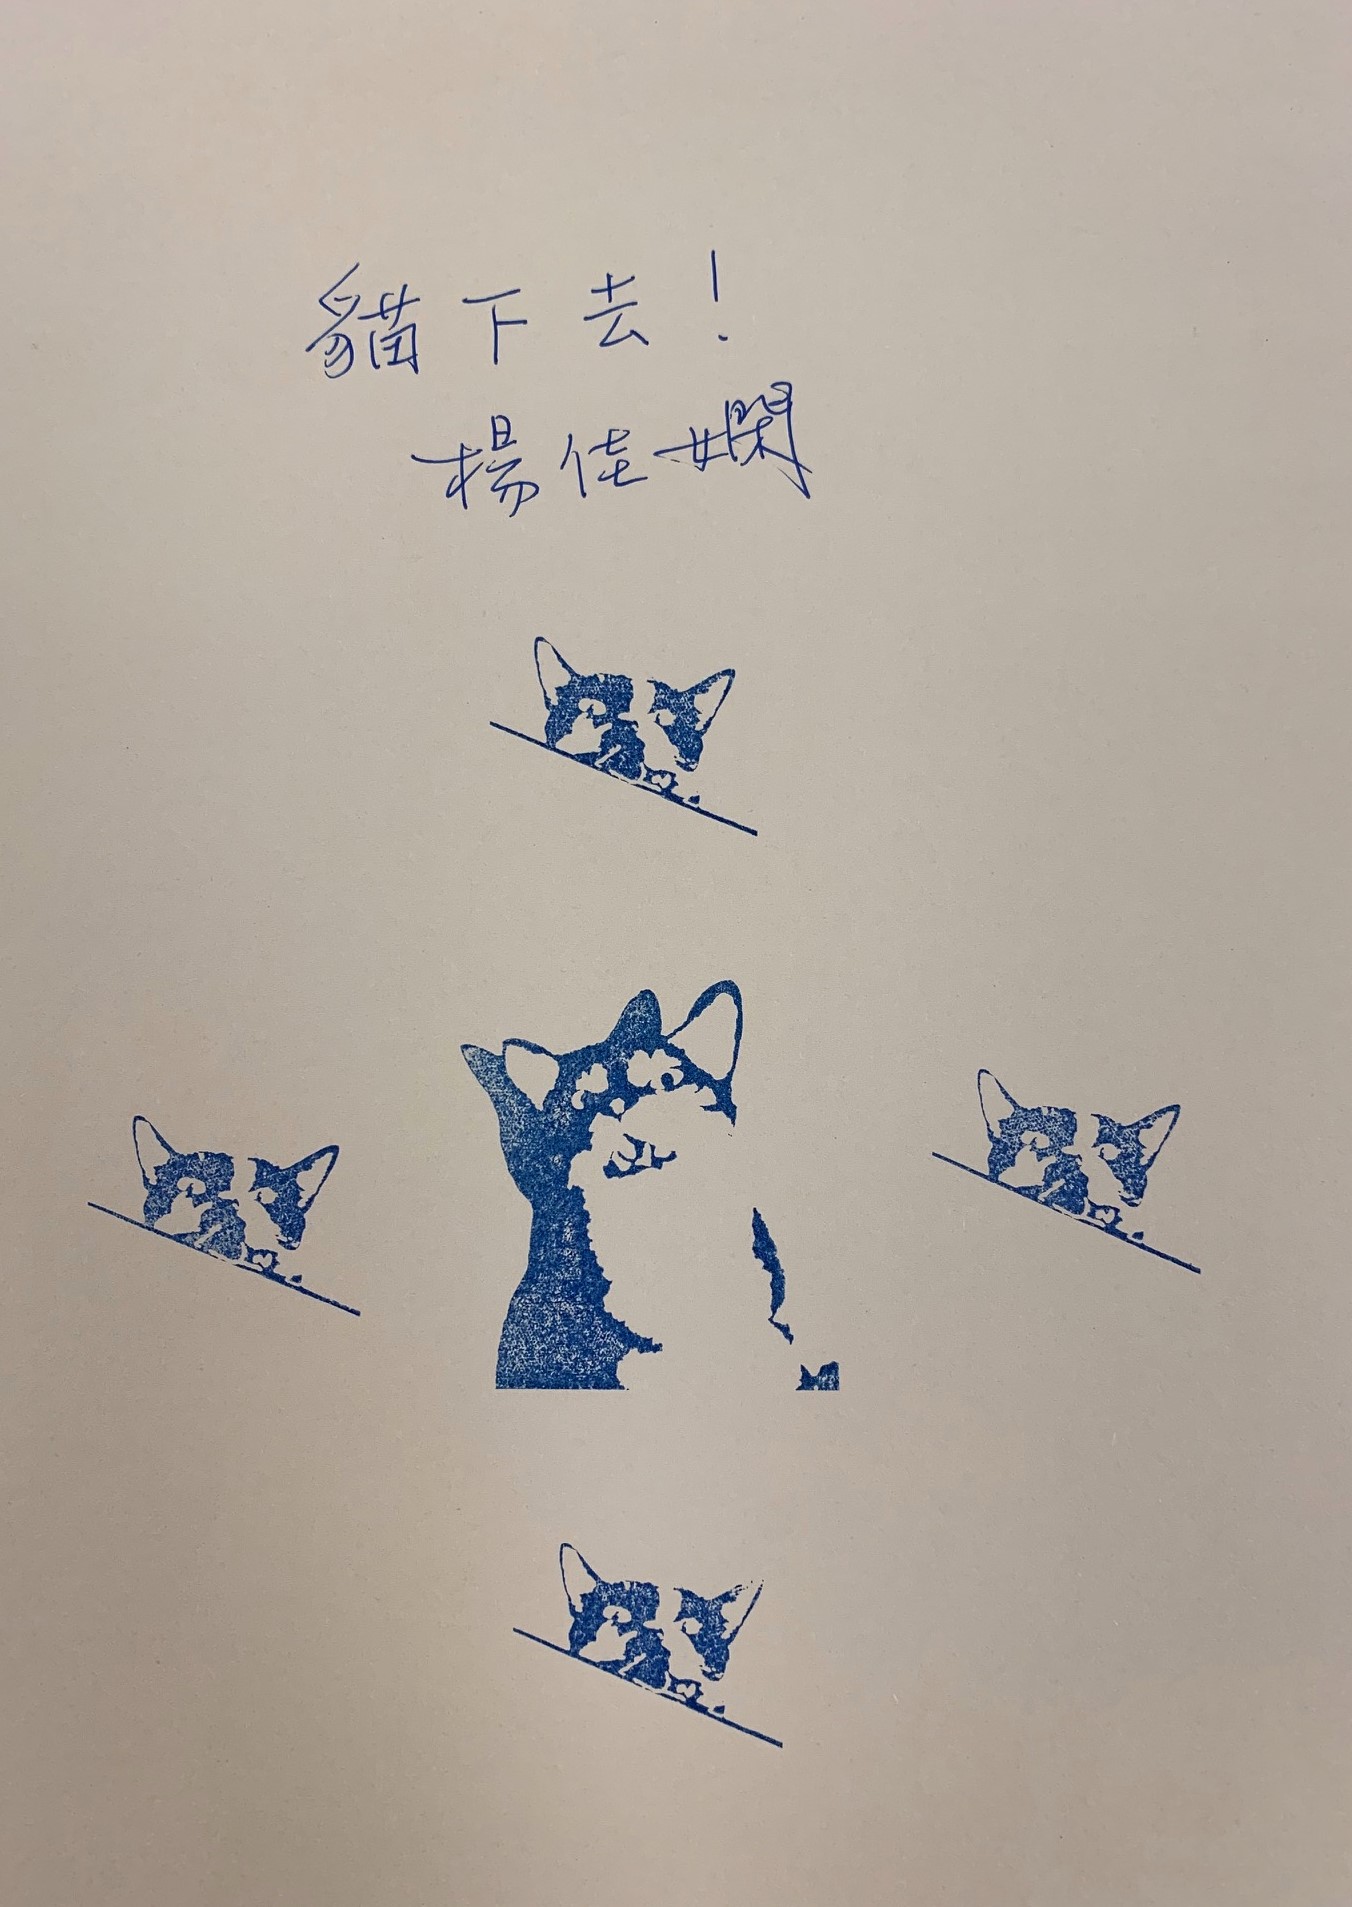 貓下去！
楊佳嫻